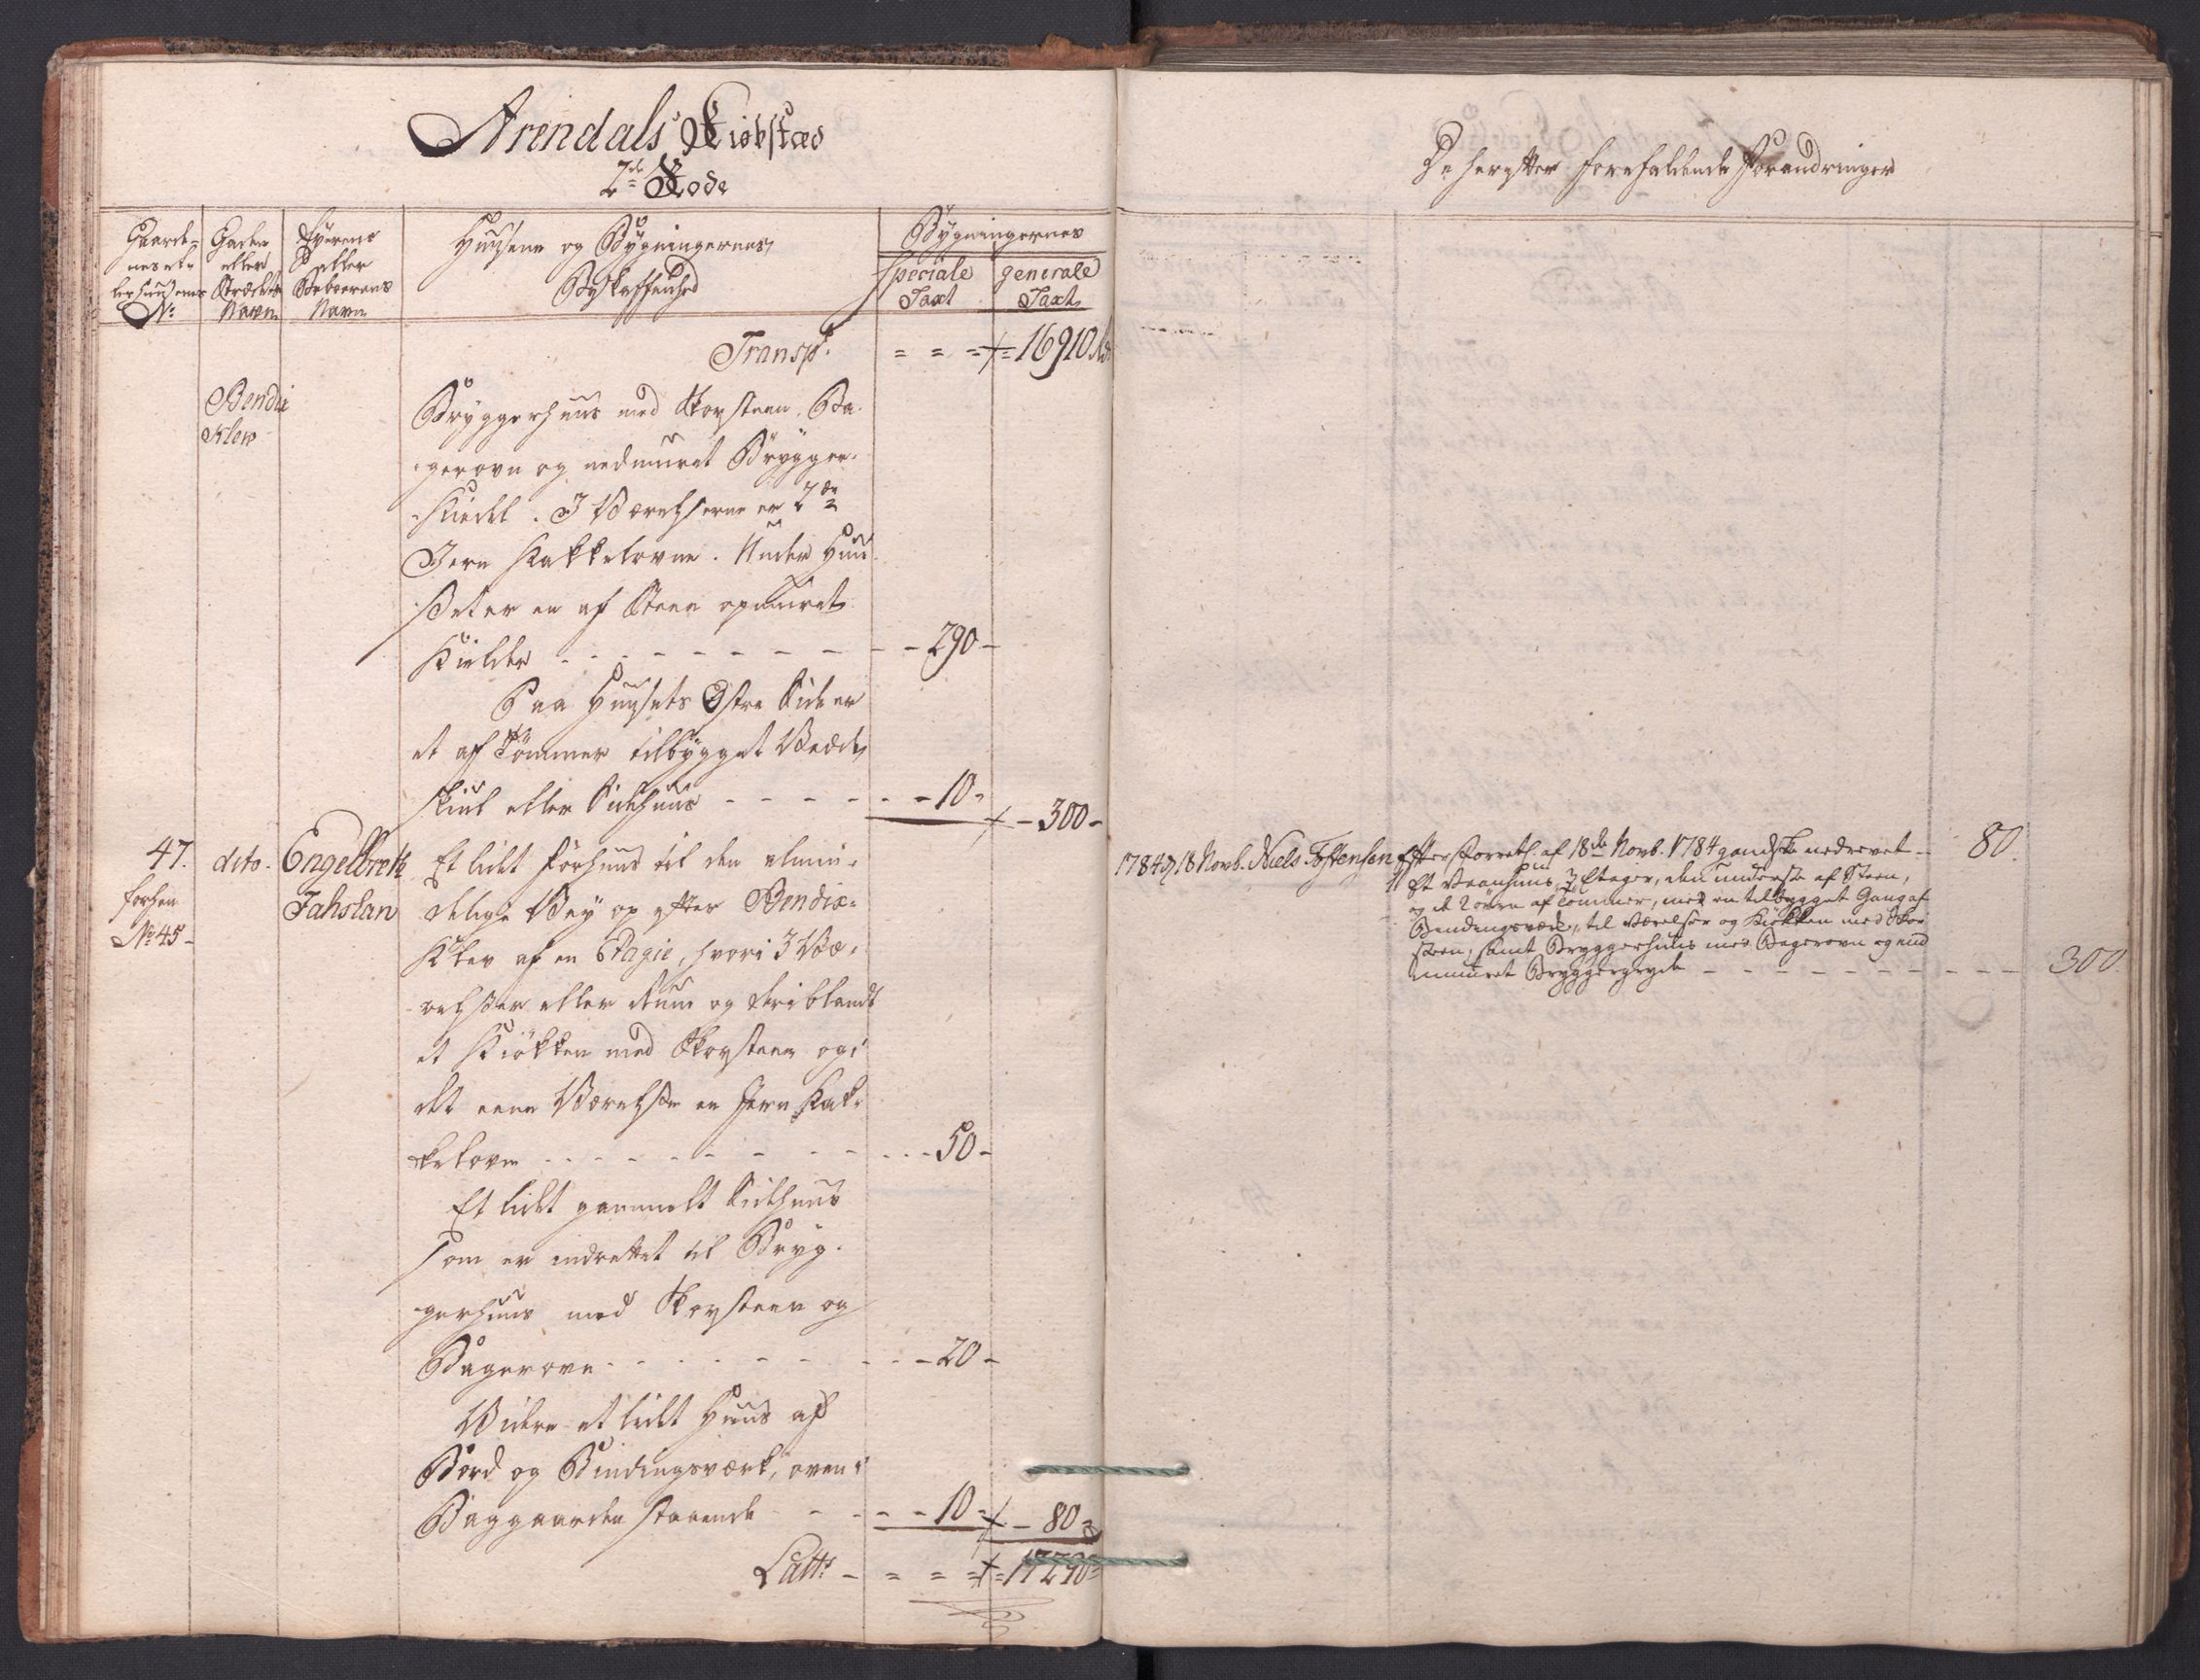 Arendals Kiøbstæd
2de Rode
Gaarde-
nes el-
ler Huusenes
No
Gadens
eller
Strædets
Navn
Eyerens
eller
Beboerens
Navn
Huusene og Bygningernes
Beskaffenhed
Bygningernes
speciale
Taxt
generale
Taxt
Transpt. = = = 16910 Rd
Bendix
Klew
Bryggerhuus med Skorsteen, Ba-
gerovn og nedmuret Brygger-
Kiedel. I Værelserne er 2de
Jern Kakkelovne. Under Huu-
set er en af Steen opmuret
Kielder - - - 290 -
Paa Huusets Østre Side er
et af Tømmer tilbygget Vedde
skiul eller Sidehuus - - - 10 -
- 300 -
47.
forhen
No 45 -
dito -
Engelbret
Fahslan
Et lidet Forhuus til den almin-
delige Vey op efter Bendix-
Klev af en Etagie, hvori 3 Væ-
relser eller Rum og deriblandt
et Kiøkken med Skorsteen og i
det eene Værelse en Jern Kak-
kelovn - - - 50 -
Et lidet gammelt Sidehuus
som er indrettet til Bryg-
gerhuus med Skorsteen og
Bagerovn - - - 20 -
Videre et lidet Huus af
Bord og Bindingsværk, oven i
Baggaarden staaende - - - 10 -
- 80 -
Latts - = = = 17290 =
De herefter forefaldende Forandringer
1784 d 18 Novb. Niels Tostensen
Efter Forretn. af 18de Novb. 1784 gandske nedrevet - - 80.
Et Vaanhuus, 3 Etager, den underste af Steen,
og de 2 øvre af Tømmer, med en tilbygget Gang af
Bindingsværk, til Værelser og Kiøkken med Skor
steen, samt Bryggerhuus med Bagerovn og ind
muuret Bryggergryde - - - 300.